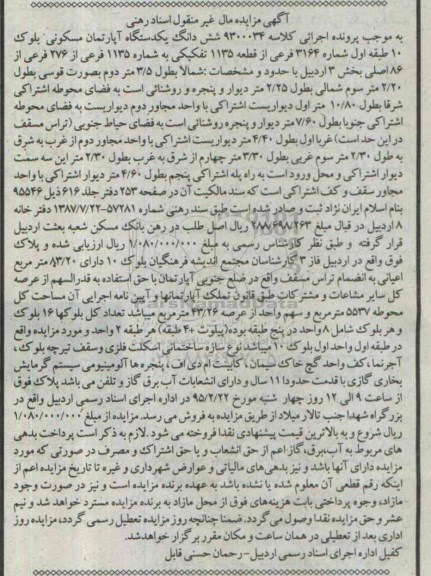 آگهی مزایده مال غیر منقول اسناد رهنی
به موجب پرونده اجرائی کلاسه ۹۳۰۰۰۳۴ شش دانگ یکدستگاه آپارتمان مسکونی بلوک
۱۰ طبقه اول شماره ۳۱۶۴ فرعی از قطعه ۱۱۳۵ تفکیکی به شماره ۱۱۳۵ فرعی از ۲۷۶ فرعی از
۸۶ اصلی بخش ۳ اردبیل با حدود و مشخصات :شمالا بطول ۳/۵ متر دوم بصورت قوسی بطول
۲/۲۰ متر سوم شمالی بطول ۲/۲۵ متر دیوار و پنجره و روشنائی است به فضای محوطه اشتراکی
شرقا بطول ۱۰/۸۰ متر اول دیواریست اشتراکی با واحد مجاور دوم دیواریست به فضای محوطه
اشتراکی جنوبا بطول ۷/۶۰ متر دیوار و پنجره روشنائی است به فضای حیاط جنوبی (تراس مسقف
در این حد است) غربا اول بطول ۴/۴۰ متر دیواریست اشتراکی با واحد مجاور دوم از غرب به شرق
به طول ۲/۳۰ متر سوم غربی بطول ۳/۳۰ متر چهارم از شرق به غرب بطول ۲/۳۰ متر این سه سمت
دیوار اشتراکی و محل ورود است به راه پله اشتراکی پنجم بطول ۴/۶۰ متر دیوار اشتراکی با واحد
مجاور سقف و کف اشتراکی است که سند مالکیت آن در صفحه ۲۵۳ دفتر جلد ۶۱۶ ذیل ۹۵۵۴۶
بنام اسلام ایران نژاد ثبت و صادر شده است طبق سند رهنی شماره ۵۷۲۸۱-۱۳۸۷/۷/۲۲ دفتر خانه
۸ اردبیل در قبال مبلغ ۲۸۸/۸۹۸/۲۶۳ ریال اصل طلب در رهن بانک مسکن شعبه بعثت اردبیل
قرار گرفته و طبق نظر کارشناس رسمی به مبلغ ۱/۰۸۰/۰۰۰/۰۰۰ ریال ارزیابی شده و پلاک
فوق واقع در اردبیل فاز ۳ کارشناسان مجتمع اندیشه فرهنگیان بلوک ۱۰ دارای ۸۳/۲۰ متر مربع
اعیانی به انضمام تراس مسقف واقع در ضلع جنوبی آپارتمان با حق استفاده به قدرالسهم از عرصه
کل سایر مشاعات و مشترکات طبق قانون تملک آپارتمانها و آیین نامه اجرایی آن مساحت کل
محوطه ۵۵۳۷ مترمربع و سهم واحد از عرصه ۴۳/۲۶ مترمربع میباشد تعداد کل بلوکها ۱۶ بلوک
و هر بلوک شامل ۸ واحد در پنج طبقه بوده(پیلوت +۴ طبقه) هر طبقه ۲ واحد و مورد مزایده واقع
در طبقه اول واحد اول بلوک ۱۰ میباشد نوع سازه ساختمانی اسکلت فلزی و سقف تیرچه بلوک ،
آجرنما ، کف واحد گچ خاک سیمان ، کابینت ام دی اف ، پنجره ها آلومینیومی سیستم گرمایش
بخاری گازی با قدمت حدودا ۱۱ سال و دارای انشعابات آب برق گاز و تلفن می باشد پلاک فوق
از ساعت ۹ الی ۱۲ روز چهار شنبه مورخ ۹۵/۲/۲۲ در اداره اجرای اسناد رسمی اردبیل واقع در
بزرگراه شهدا جنب تالار میلاد از طریق مزایده به فروش می رسد. مزایده از مبلغ ۱/۰۸۰/۰۰۰/۰۰۰
ریال شروع و به بالاترین قیمت پیشنهادی نقدا فروخته می شود .لازم به ذکر است پرداخت بدهی
های مربوط به آب،برق، گاز اعم از حق انشعاب و یا حق اشتراک و مصرف در صورتی که مورد
مزایده دارای آنها باشد و نیز بدهی های مالیاتی و عوارض شهرداری و غیره تا تاریخ مزایده اعم از
اینکه رقم قطعی آن معلوم شده یا نشده باشد به عهده برنده مزایده است و نیز در صورت وجود
مازاد، وجوه پرداختی بابت هزینه های فوق از محل مازاد به برنده مزایده مسترد خواهد شد و نیم
عشر و حق مزایده نقدا وصول می گردد. ضمنا چنانچه روز مزایده تعطیل رسمی گردد، مزایده روز
اداری بعد از تعطیلی در همان ساعت و مکان مقرر برگزار خواهد شد.
کفیل اداره اجرای اسناد رسمی اردبیل- رحمان حسنی قابل